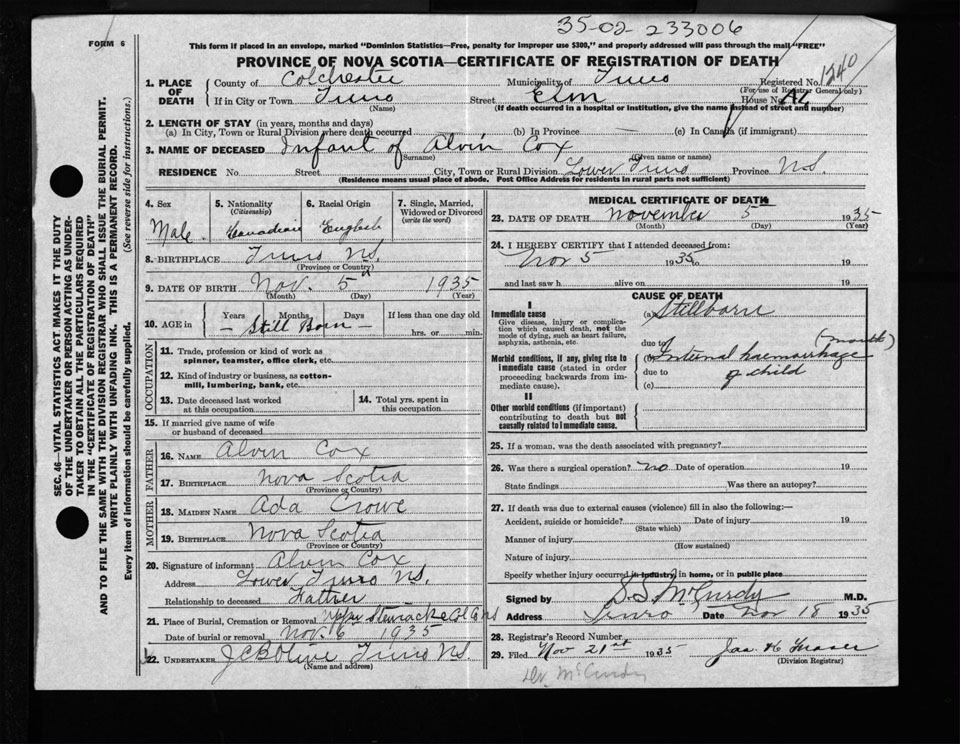 35-02-233006
FORM 6
This form if placed in an envelope, marked "Dominion Statistics—Free, penalty for improper use $300," and properly addressed will pass through the mail "FREE"
PROVINCE OF NOVA SCOTIA—CERTIFICATE OF REGISTRATION OF DEATH
1. PLACE OF DEATH County of Colchester Municipality of Truro Registered No. 1240
(For use of Registrar General only)
If in City or Town Truro Street Elm House No.
(Name) (If death occurred in a hospital or institution, give the name instead of street and number)
2. LENGTH OF STAY (in years, months and days)
(a) In City, Town or Rural Division where death occurred (b) In Province — (c) In Canada (if immigrant)
3. NAME OF DECEASED Infant of Alvin Cox
(Surname) (Given name or names)
RESIDENCE No. Street City, Town or Rural Division Lower Truro Province N.S.
(Residence means usual place of abode. Post Office Address for residents in rural parts not sufficient)
SEC. 46—VITAL STATISTICS ACT MAKES IT THE DUTY
OF THE UNDERTAKER OR PERSON ACTING AS UNDER-
TAKER TO OBTAIN ALL THE PARTICULARS REQUIRED
IN THE "CERTIFICATE OF REGISTRATION OF DEATH"
AND TO FILE THE SAME WITH THE DIVISION REGISTRAR WHO SHALL ISSUE THE BURIAL PERMIT.
WRITE PLAINLY WITH UNFADING INK. THIS IS A PERMANENT RECORD.
Every item of information should be carefully supplied. (See reverse side for instructions.)
4. Sex
Male
5. Nationality
(Citizenship)
Canadian
6. Racial Origin
English
7. Single, Married,
Widowed or Divorced
(write the word)
8. BIRTHPLACE Truro N.S.
(Province or Country)
9. DATE OF BIRTH Nov. 5 1935
(Month) (Day) (Year)
10. AGE in Years Months Days If less than one day old
— Still Born — hrs. or min.
OCCUPATION
11. Trade, profession or kind of work as
spinner, teamster, office clerk, etc.
12. Kind of industry or business, as cotton-
mill, lumbering, bank, etc.
13. Date deceased last worked
at this occupation
14. Total yrs. spent in
this occupation
15. If married give name of wife
or husband of deceased
FATHER
16. NAME Alvin Cox
17. BIRTHPLACE Nova Scotia
(Province or Country)
MOTHER
18. MAIDEN NAME Ada Crowe
19. BIRTHPLACE Nova Scotia
(Province or Country)
20. Signature of informant Alvin Cox
Address Lower Truro N.S.
Relationship to deceased Father
21. Place of Burial, Cremation or Removal Upper Stewiacke Col Co NS
Date of burial or removal Nov. 6 1935
22. UNDERTAKER Truro N.S.
(Name and address)
MEDICAL CERTIFICATE OF DEATH
23. DATE OF DEATH November 5 1935
(Month) (Day) (Year)
24. I HEREBY CERTIFY that I attended deceased from:
Nov 5 1935 to 19
and last saw h alive on 19
CAUSE OF DEATH
I
Immediate cause
Give disease, injury or complica-
tion which caused death, not the
mode of dying, such as heart failure,
asphyxia, asthenia, etc.
(a) Stillborn
due to
Morbid conditions, if any, giving rise to
immediate cause (stated in order
proceeding backwards from im-
mediate cause).
(b) Internal haemorrhage (mouth)
due to of child
(c)
II
Other morbid conditions (if important)
contributing to death but not
causally related to immediate cause.
25. If a woman, was the death associated with pregnancy?
26. Was there a surgical operation? no Date of operation 19
State findings Was there an autopsy?
27. If death was due to external causes (violence) fill in also the following:—
Accident, suicide or homicide? Date of injury 19
(State which)
Manner of injury
(How sustained)
Nature of injury
Specify whether injury occurred in industry, in home, or in public place
Signed by S.S. McCurdy M.D.
Address Truro Date Nov 18 1935
28. Registrar's Record Number
29. Filed Nov 21st 1935 Jas. H Fraser
(Division Registrar)
Dr. McCurdy